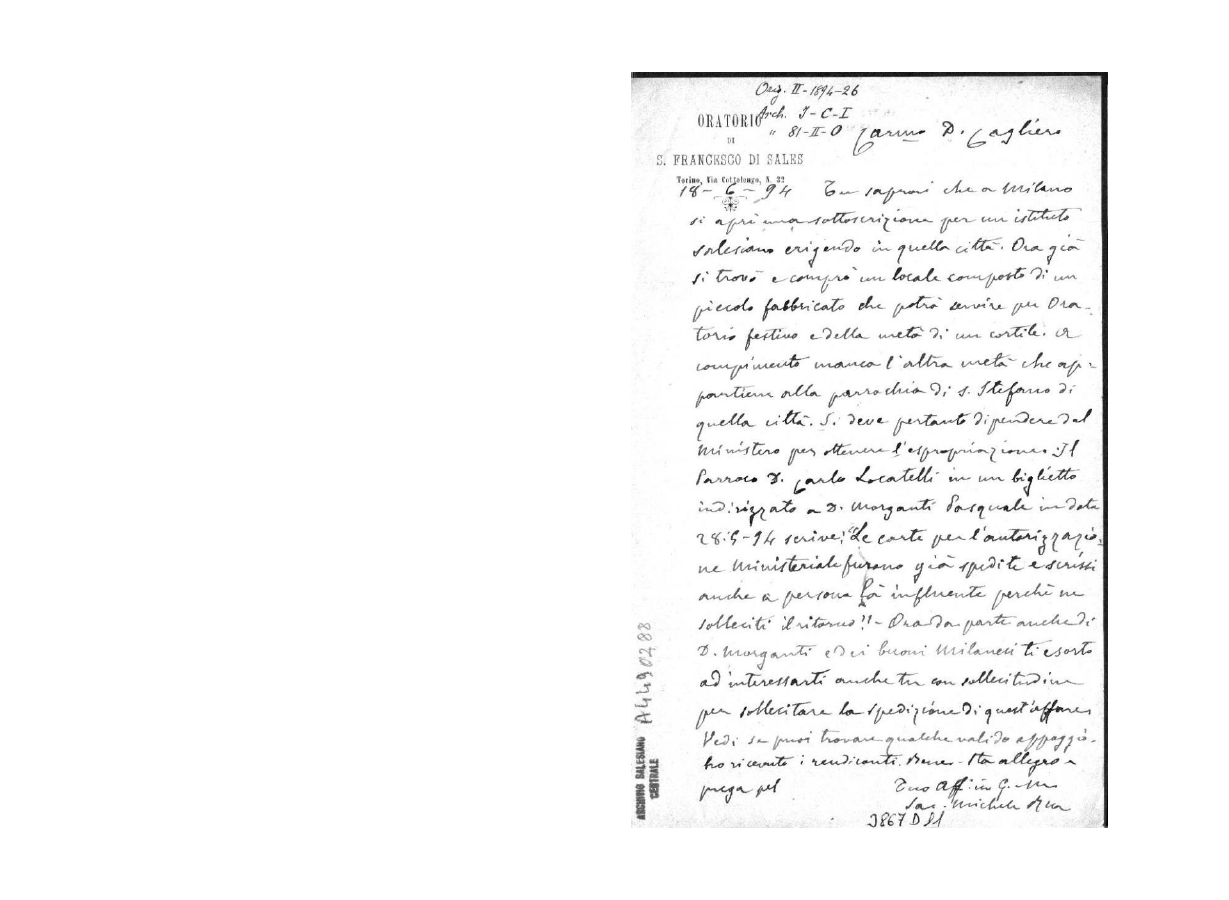 Orig. II-1894-26
Arch. I-C-I
" 81-II-O
ORATORIO
DI
S. FRANCESCO DI SALES
Torino, Via Cottolengo, N. 32
18-6-94
Carmo D. Cagliero
Tu saprai che a Milano
si aprì una sottoscrizione per un istituto
salesiano erigendo in quella città. Ora già
si trovò e comprò un locale composto di un
piccolo fabbricato che potrà servire per Ora-
torio festivo e della metà di un cortile. A
compimento manca l'altra metà che ap-
partiene alla parrochia di S. Stefano di
quella città. Si deve pertanto dipendere dal
Ministero per ottenere l'espropriazione. Il
Parroco D. Carlo Locatelli in un biglietto
indirizzato a D. Morganti Pasquale in data
28-5-94 scrive: "Le carte per l'autorizzazio-
ne Ministeriale furono già spedite e scrissi
anche a persona là influente perchè ne
solleciti il ritorno!" - Ora da parte anche di
D. Morganti e dei buoni Milanesi ti esorto
ad interessarti anche tu con sollecitudine
per sollecitare la spedizione di quest'affare.
Vedi se puoi trovare qualche valido appoggio.
ho ricevuto i rendiconti. Bene. Sta allegro e
prega pel
Tuo aff. in G. e M.
Sac. Michele Rua
3867 D 11
A4490288
ARCHIVIO SALESIANO
CENTRALE